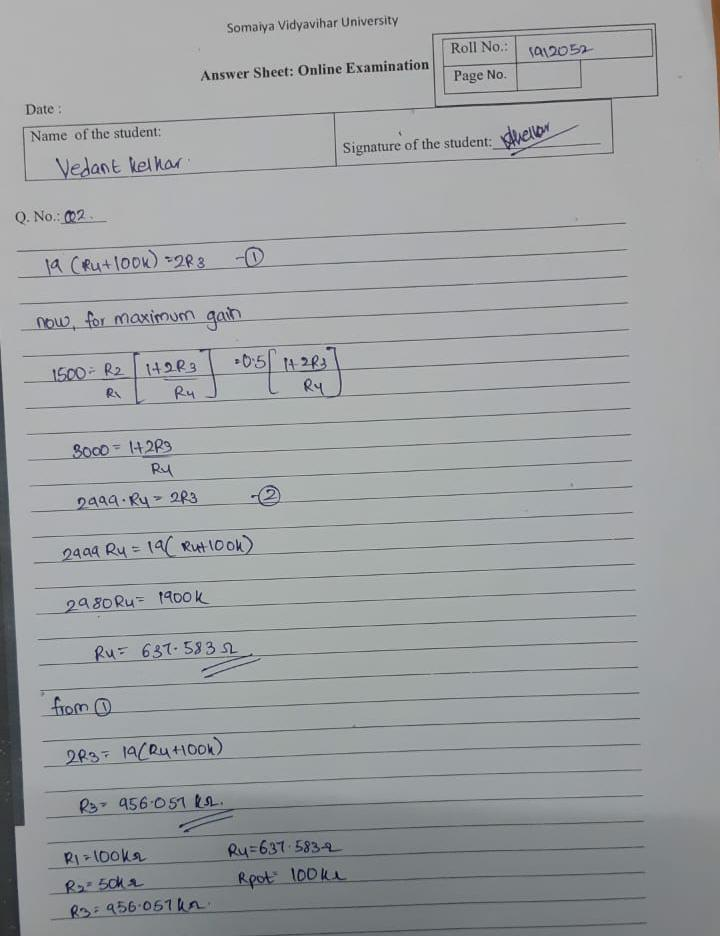 Somaiya Vidyavihar University
Answer Sheet: Online Examination
Roll No.: 1912052
Page No.
Date :
Name of the student:
Vedant Kelkar
Signature of the student:
Q. No.: 02.
19 (R4+100K) = 2R3 -①
now, for maximum gain
1500 = R2/R1 [1+2R3/R4] = 0.5 [1+2R3/R4]
3000 = 1+2R3/R4
2999·R4 = 2R3 -②
2999 R4 = 19( R4+100K)
2980R4 = 1900K
R4 = 637.583 Ω
from ①
2R3 = 19(R4+100K)
R3 = 956.057 KΩ.
R1 = 100KΩ R4=637.583Ω
R2= 50KΩ Rpot= 100KΩ
R3= 956.057KΩ.